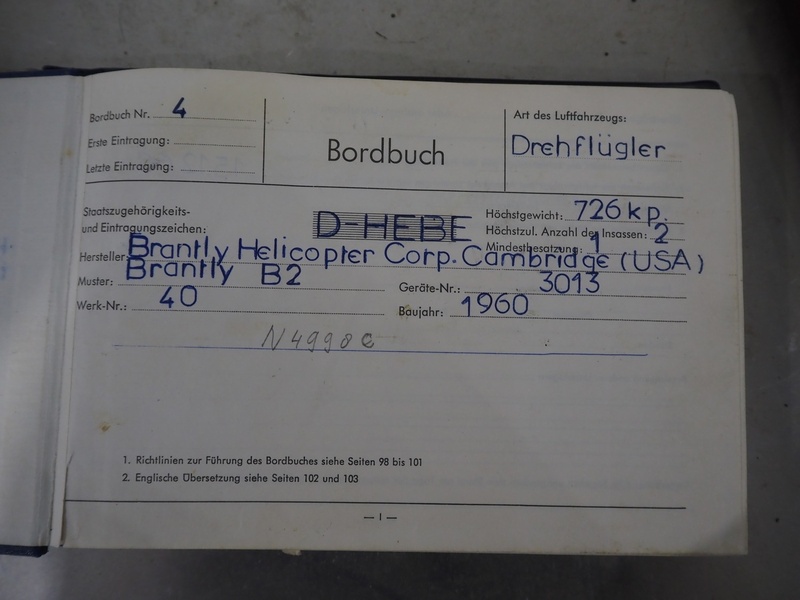 Bordbuch Nr. 4
Erste Eintragung:
Letzte Eintragung:
Bordbuch
Art des Luftfahrzeugs:
Drehflügler
Staatszugehörigkeits-
und Eintragungszeichen: D-HEBE
Höchstgewicht: 726 kp.
Höchstzul. Anzahl der Insassen: 2
Mindestbesatzung: 1
Hersteller: Brantly Helicopter Corp. Cambridge (USA)
Muster: Brantly B2
Geräte-Nr.: 3013
Werk-Nr.: 40
Baujahr: 1960
N4998C
1. Richtlinien zur Führung des Bordbuches siehe Seiten 98 bis 101
2. Englische Übersetzung siehe Seiten 102 und 103
— 1 —